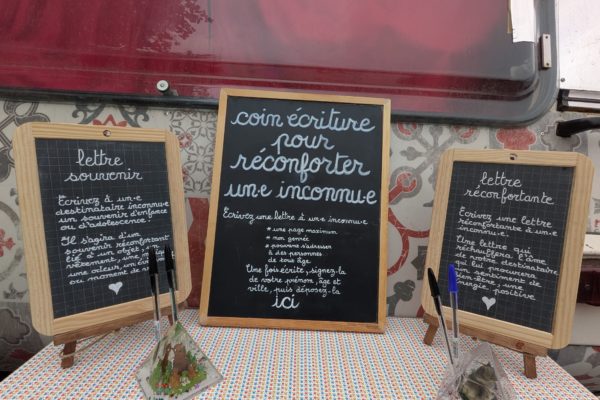 lettre
souvenir
Écrivez à un·e
destinataire inconnu·e
un souvenir d'enfance
ou d'adolescence!
Il s'agira d'un
souvenir réconfortant
lié d'un objet, un
vêtement, une
odeur, un
ou moment de vie
coin écriture
pour
réconforter
un·e inconnu·e
Écrivez une lettre à un·e inconnu·e
• une page maximum
• non genrée
• pouvant s'adresser
à des personnes
de tous âge
Une fois écrite, signez-la
de votre prénom, âge et
ville, puis déposez-la
ici
lettre
réconfortante
Écrivez une lettre
réconfortante à un·e
inconnu·e.
Une lettre qui
réchauffera l'âme
de notre destinataire
qui lui procurera
un sentiment de
bien-être, une
énergie positive